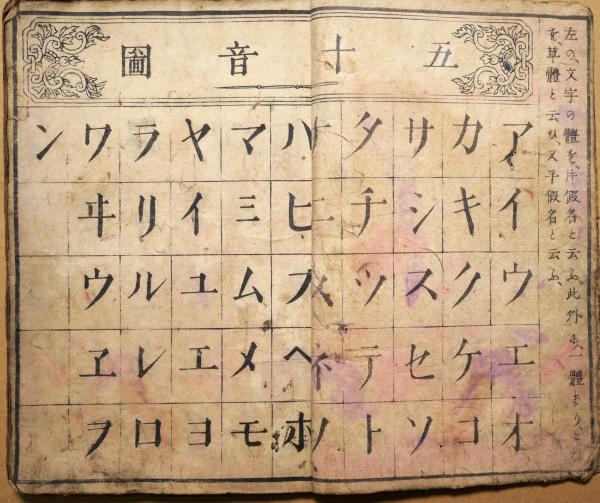 五十音圖
左の、文字の體を、片假名と云ふ、此外に、一體あり
を草體と云ひ、又平假名と云ふ、
アイウエオ
カキクケコ
サシスセソ
タチツテト
ナニヌネノ
ハヒフヘホ
マミムメモ
ヤイユエヨ
ラリルレロ
ワヰウヱヲ
ン